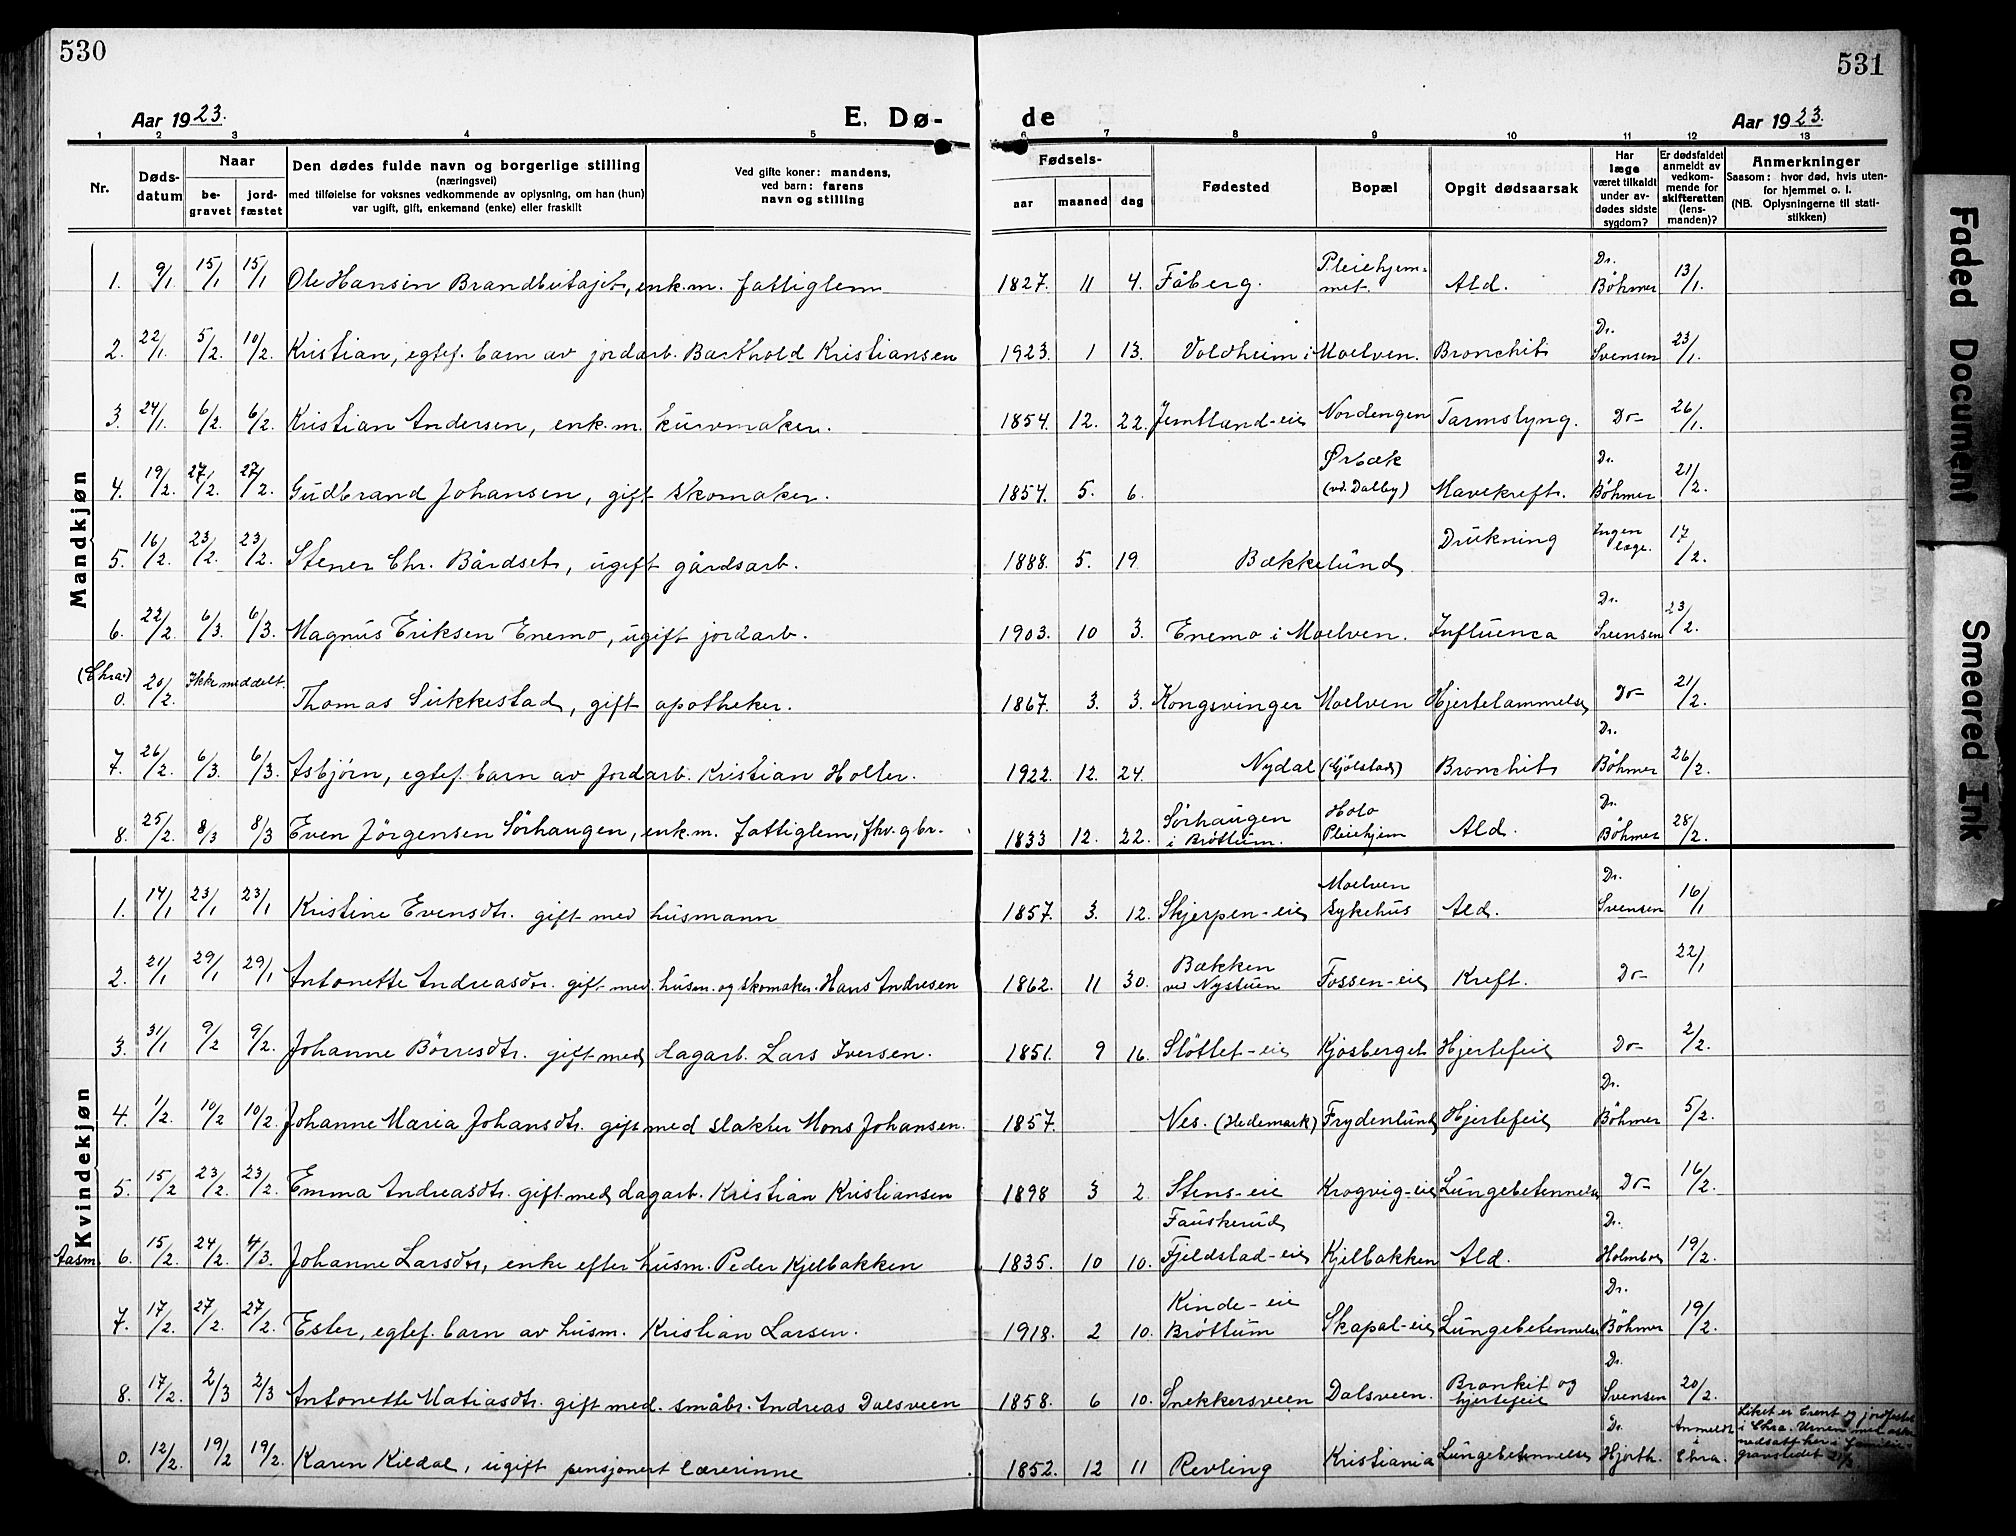 530
531
Aar 1923.
E. Dø-
de
Aar 1923.
1 2 3 4 5 6 7 8 9 10 11 12 13
Nr.
Døds-
datum
Naar
be-
gravet
jord-
fæstet
Den dødes fulde navn og borgerlige stilling
(næringsvei)
med tilføielse for voksnes vedkommende av oplysning, om han (hun)
var ugift, gift, enkemand (enke) eller fraskilt
Ved gifte koner: mandens,
ved barn: farens
navn og stilling
Fødsels-
aar
maaned
dag
Fødested
Bopæl
Opgit dødsaarsak
Har
læge
været tilkaldt
under av-
dødes sidste
sygdom?
Er dødsfaldet
anmeldt av
vedkom-
mende for
skifteretten
(lens-
manden)?
Anmerkninger
Saasom: hvor død, hvis uten-
for hjemmet o. l.
(NB. Oplysningerne til stati-
stikken)
Mandkjøn
1. 9/1 15/1 15/1 Ole Hansen enk.m. fattiglem 1827. 11 4. Fåberg. Pleiehjem-
met. Ald. Dr. Böhmer 13/1.
2. 22/1. 5/2. 10/2. Kristian, egtef. barn av jordarb. Barthold Kristiansen 1923. 1 13. Voldheim i Moelven. Bronchit Dr. Svensen 23/1.
3. 24/1. 6/2. 6/2. Kristian Andersen, enk.m. kurvmaker. 1854. 12. 22. Jemtland-eie Nordengen Tarmslyng. Do 26/1.
4. 19/2. 27/2. 27/2. Gudbrand Johansen, gift skomaker. 1854. 5. 6. Ørbæk
(vd. Dalby) Mavekreft. Dr. Böhmer 21/2.
5. 16/2. 23/2. 23/2. Stener Chr. Bårdset, ugift gårdsarb. 1888. 5. 19. Bækkelund Drukning Ingen
læge. 17/2.
6. 22/2. 6/3. 6/3. Magnus Eriksen Enemo, ugift jordarb. 1903. 10 3. Enemo i Moelven. Influenca Dr. Svensen 23/2.
(Chra.) 0. 20/2. Ikke meddelt. Thomas Sukkestad, gift apotheker. 1867. 3. 3. Kongsvinger Moelven Hjertelammelse Do 21/2.
7. 26/2. 6/3. 6/3. Asbjørn, egtef. barn av jordarb. Kristian Holter. 1922. 12. 24. Nydal (Gjølstad) Bronchit Dr. Böhmer 26/2.
8. 25/2. 8/3 8/3 Even Jörgensen Sörhaugen, enk.m. fattiglem, fhv. gbr. 1833 12. 22. Sörhaugen
i Bröttum. Holo
Pleiehjem Ald. Dr. Böhmer 28/2.
Kvindekjøn
1. 14/1 23/1 23/1 Kristine Evensdtr. gift med husmann 1857. 3. 12. Skjerpen-eie Moelven
sykehus Ald. Dr. Svensen 16/1
2. 21/1 29/1 29/1 Antonette Andreasdtr. gift med husm. og skomaker Hans Andresen 1862. 11 30. Bækken
ved Nystuen Fossen-eie Kreft. Do 22/1
3. 31/1 9/2 9/2. Johanne Börresdtr. gift med dagarb. Lars Iversen. 1851. 9 16. Slöttet-eie Kjosberget Hjertefeil Do 2/2.
4. 1/2. 10/2 10/2. Johanne Maria Johansdtr. gift med slakter Mons Johansen. 1857. Ves. (Hedemark) Frydenlund Hjertefeil Dr. Böhmer 5/2.
5. 15/2 23/2. 23/2. Emma Andreasdtr. gift med dagarb. Kristian Kristiansen 1898 3 2. Stens-eie Krogvig-eie Lungebetennelse Do 16/2.
Aasm. 6. 15/2. 24/2. 4/3. Johanne Larsdtr, enke efter husm. Peder Kjelbakken 1835. 10 10. Fauskerud
Fjeldstad-eie Kjelbakken Ald. Dr. Holmboe 19/2.
7. 17/2. 27/2. 27/2. Ester, egtef. barn av husm. Kristian Larsen. 1918. 2 10. Kinde-eie
Bröttum Skapal-eie Lungebetennelse Dr. Böhmer 19/2.
8. 17/2. 2/3 2/3 Antonette Matiasdtr. gift med. småbr. Andreas Dalsveen 1858. 6 10. Snekkersveen Dalsveen. Bronkit og
hjertefeil Dr. Svensen 20/2.
0. 12/2. 19/2 19/2. Karen Kildal, ugift pensjonert lærerinne 1852. 12 11 Revling Kristiania Lungebetennelse Dr. Hjorth. Anmeldt
i
Chra. Liket er brent og jordfæstet
i Chra. Urnen med aske
nedsatt her i familie-
gravstedet
Faded Document
Smeared Ink